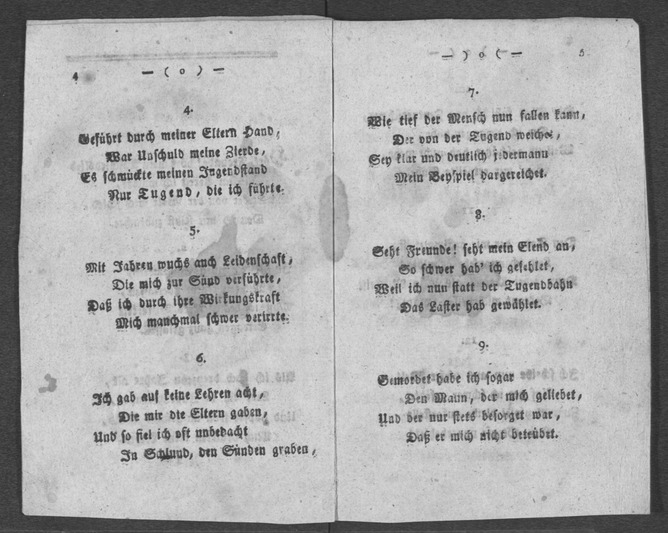 4
— ( o ) —
4.
Geführt durch meiner Eltern Hand,
War Unschuld meine Zierde,
Es schmückte meinen Jugendstand
Nur Tugend, die ich führte.
5.
Mit Jahren wuchs auch Leidenschaft,
Die mich zur Sünd verführte,
Daß ich durch ihre Wirkungskraft
Mich manchmal schwer verirrte.
6.
Ich gab auf keine Lehren acht,
Die mir die Eltern gaben,
Und so fiel ich oft unbedacht
In Schlund, den Sünden graben,
— ) o ( —
5
7.
Wie tief der Mensch nun fallen kann,
Der von der Tugend weichet,
Sey klar und deutlich jedermann
Mein Beyspiel dargereichet.
8.
Seht Freunde! seht mein Elend an,
So schwer hab' ich gefehlet,
Weil ich nun statt der Tugendbahn
Das Laster hab gewählet.
9.
Gemordet habe ich sogar
Den Mann, der mich geliebet,
Und der nur stets besorget war,
Daß er mich nicht betrübet.